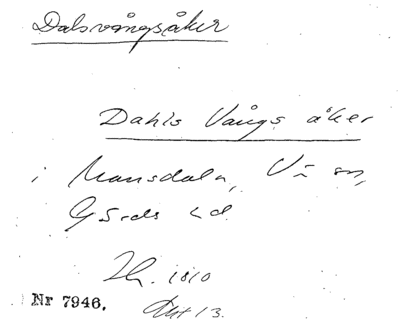 Dalsvångsåker
Dahls Vångs åker
i Mansdala, V:a sn,
Gärds hd.
Lh. 1810
Nr 7946. Akt 13.